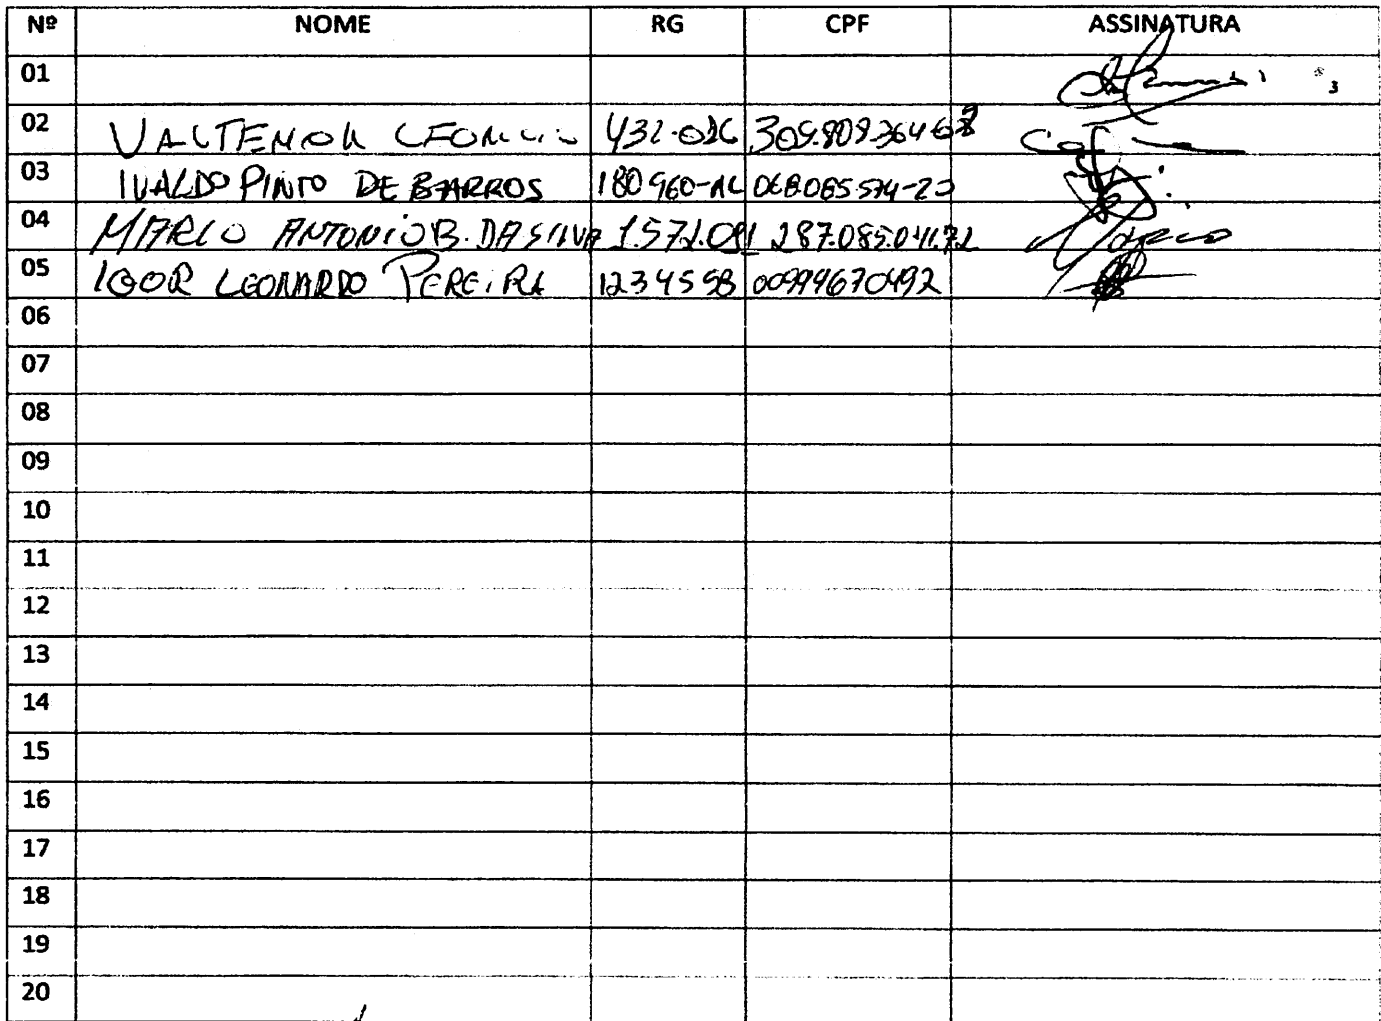 Nº NOME RG CPF ASSINATURA
01
02 VALTENOR 432-026
03 IVALDO PINTO DE BARROS 180960-AL 068085574-20
04 MARCO ANTONIO B. DA SILVA 1.572.091 287.085.041.72 Marco
05 IGOR LEONARDO PEREIRA 1234558 00994670492
06
07
08
09
10
11
12
13
14
15
16
17
18
19
20